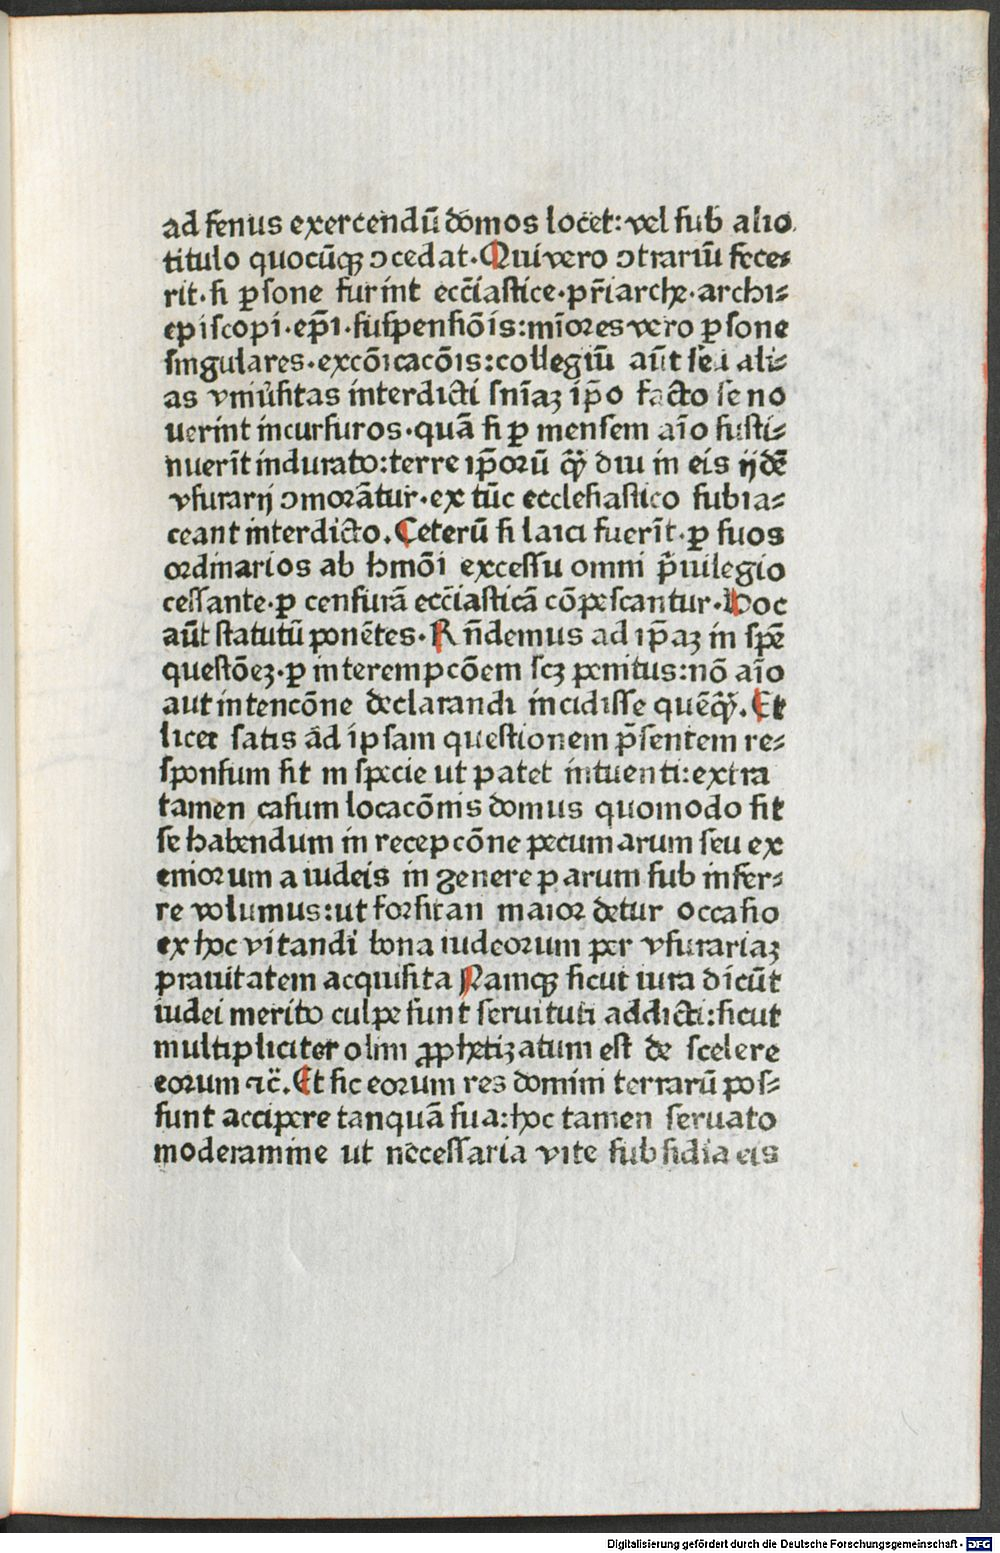 ad fenus exercendū domos locet: vel sub alio
titulo quocūqꝫ ɔcedat. Qui vero ɔtrariū fece⸗
rit. si ꝑsone fuřint ecc̄iastice. pr̄iarche. archi⸗
episcopi. ep̄i. suspensiōis: mīores vero ꝑsone
singulares. excōicacōis: collegiū aūt seu ali⸗
as vniūsitas interdicti snīaꝫ ip̄o facto se no
uerint incursuros. quā si ꝑ mensem aīo susti⸗
nuerīt indurato: terre ip̄orū qꝫ̄ diu in eis ijdē
vsurarij ɔmorātur. ex tūc ecclesiastico subia⸗
ceant interdicto. Ceterū si laici fuerīt. ꝑ suos
ordinarios ab hmōi excessu omni p̄uilegio
cessante. ꝑ censurā ecc̄iasticā cōpescantur. Hoc
aūt statutū ponētes. Rn̄demus ad ip̄aꝫ in spē
questōeꝫ. ꝑ interempcōem scꝫ penitus: nō aīo
aut intencōne declarandi incidisse quēqꝫ̄. Et
licet satis ad ipsam questionem p̄sentem re⸗
sponsum sit in specie ut patet intuenti: extra
tamen casum locacōnis domus quomodo sit
se habendum in recepcōne pecuniarum seu ex
eniorum a iudeis in genere parum sub infer⸗
re volumus: ut forsitan maior detur occasio
ex hoc vitandi bona iudeorum per vsurariaꝫ
prauitatem acquisita Namqꝫ sicut iura dicūt
iudei merito culpe sunt seruituti addicti: sicut
multipliciter olim ꝓphetizatum est de scelere
eorum ⁊c̄. Et sic eorum res domini terrarū pos⸗
sunt accipere tanquā sua: hoc tamen seruato
moderamine ut necessaria vite subsidia eis
Digitalisierung gefördert durch die Deutsche Forschungsgemeinschaft - DFG